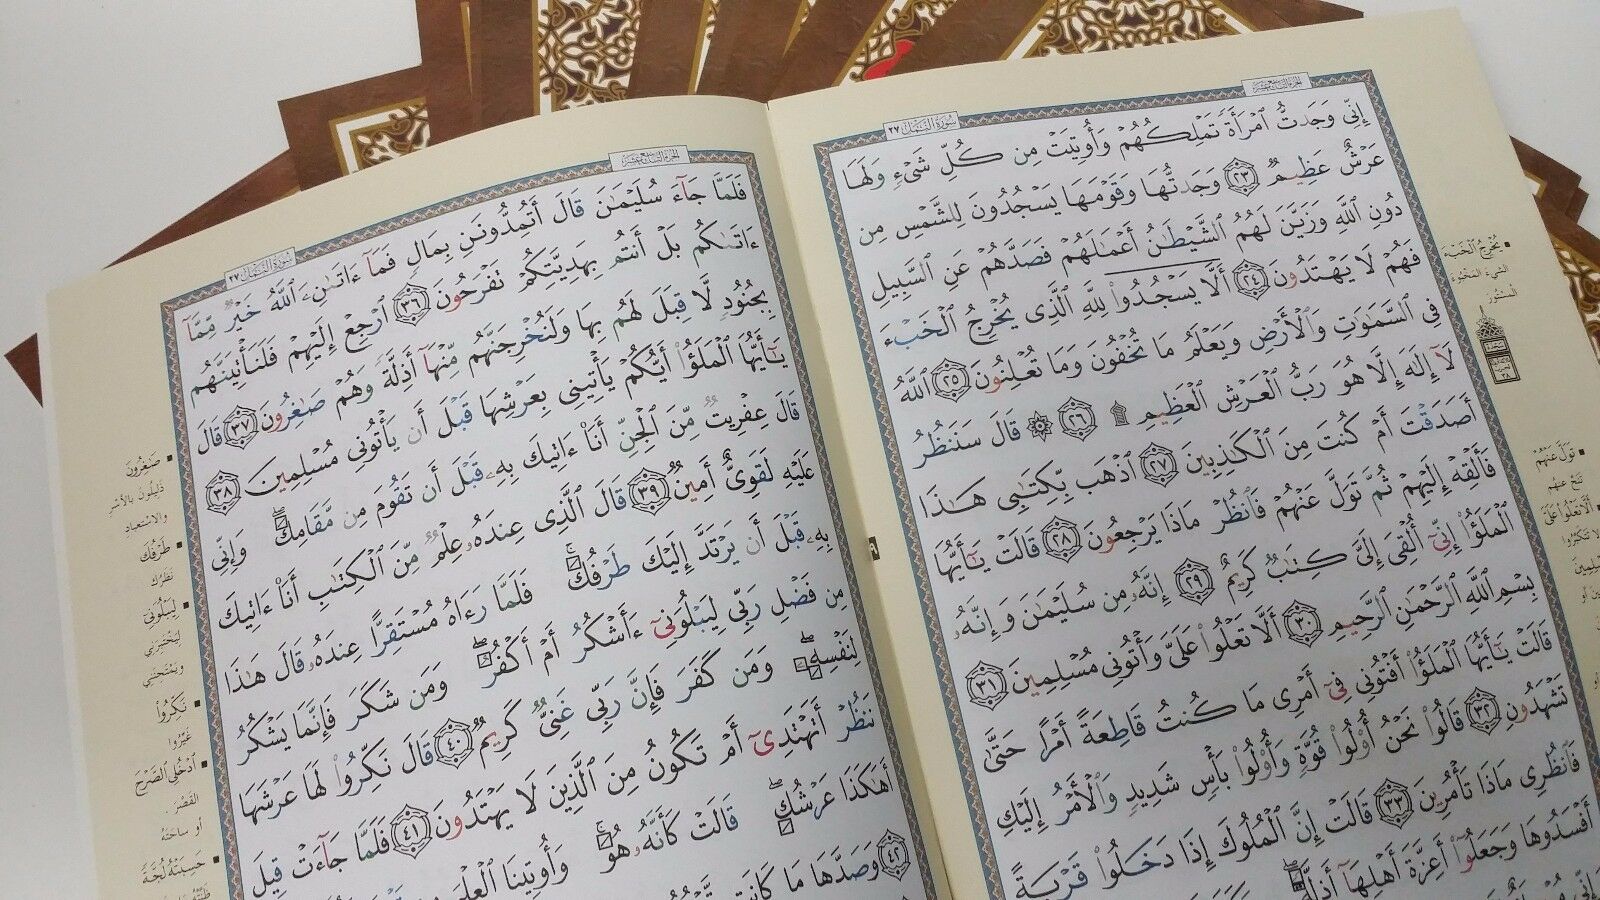 سُورَةُ النَّمْلِ ٢٧
إِنِّي وَجَدتُّ ٱمْرَأَةً تَمْلِكُهُمْ وَأُوتِيَتْ مِن كُلِّ شَىْءٍ وَلَهَا
عَرْشٌ عَظِيمٌ ٢٣ وَجَدتُّهَا وَقَوْمَهَا يَسْجُدُونَ لِلشَّمْسِ مِن
دُونِ ٱللَّهِ وَزَيَّنَ لَهُمُ ٱلشَّيْطَٰنُ أَعْمَٰلَهُمْ فَصَدَّهُمْ عَنِ ٱلسَّبِيلِ
فَهُمْ لَا يَهْتَدُونَ ٢٤ أَلَّا يَسْجُدُوا۟ لِلَّهِ ٱلَّذِى يُخْرِجُ ٱلْخَبْءَ
فِى ٱلسَّمَٰوَٰتِ وَٱلْأَرْضِ وَيَعْلَمُ مَا تُخْفُونَ وَمَا تُعْلِنُونَ ٢٥ ٱللَّهُ
لَآ إِلَٰهَ إِلَّا هُوَ رَبُّ ٱلْعَرْشِ ٱلْعَظِيمِ ۩ ٢٦ ۞ قَالَ سَنَنظُرُ
أَصَدَقْتَ أَمْ كُنتَ مِنَ ٱلْكَٰذِبِينَ ٢٧ ٱذْهَب بِّكِتَٰبِى هَٰذَا
فَأَلْقِهْ إِلَيْهِمْ ثُمَّ تَوَلَّ عَنْهُمْ فَٱنظُرْ مَاذَا يَرْجِعُونَ ٢٨ قَالَتْ يَٰٓأَيُّهَا
ٱلْمَلَؤُا۟ إِنِّىٓ أُلْقِىَ إِلَىَّ كِتَٰبٌ كَرِيمٌ ٢٩ إِنَّهُۥ مِن سُلَيْمَٰنَ وَإِنَّهُۥ
بِسْمِ ٱللَّهِ ٱلرَّحْمَٰنِ ٱلرَّحِيمِ ٣٠ أَلَّا تَعْلُوا۟ عَلَىَّ وَأْتُونِى مُسْلِمِينَ ٣١
قَالَتْ يَٰٓأَيُّهَا ٱلْمَلَؤُا۟ أَفْتُونِى فِىٓ أَمْرِى مَا كُنتُ قَاطِعَةً أَمْرًا حَتَّىٰ
تَشْهَدُونِ ٣٢ قَالُوا۟ نَحْنُ أُو۟لُوا۟ قُوَّةٍ وَأُو۟لُوا۟ بَأْسٍ شَدِيدٍ وَٱلْأَمْرُ إِلَيْكِ
فَٱنظُرِى مَاذَا تَأْمُرِينَ ٣٣ قَالَتْ إِنَّ ٱلْمُلُوكَ إِذَا دَخَلُوا۟ قَرْيَةً
أَفْسَدُوهَا وَجَعَلُوٓا۟ أَعِزَّةَ أَهْلِهَآ أَذِلَّةً
يُخْرِجُ الْخَبْءَ
الشَّيْءَ الْمَخْبُوءَ
الْمَسْتُورَ
تَوَلَّ عَنْهُمْ
تَنَحَّ عَنْهُمْ
أَلَّا تَعْلُوا عَلَىَّ
لَا تَتَكَبَّرُوا
سُورَةُ النَّمْلِ ٢٧
فَلَمَّا جَآءَ سُلَيْمَٰنَ قَالَ أَتُمِدُّونَنِ بِمَالٍ فَمَآ ءَاتَىٰنِۦَ ٱللَّهُ خَيْرٌ مِّمَّآ
ءَاتَىٰكُم بَلْ أَنتُم بِهَدِيَّتِكُمْ تَفْرَحُونَ ٣٦ ٱرْجِعْ إِلَيْهِمْ فَلَنَأْتِيَنَّهُم
بِجُنُودٍ لَّا قِبَلَ لَهُم بِهَا وَلَنُخْرِجَنَّهُم مِّنْهَآ أَذِلَّةً وَهُمْ صَٰغِرُونَ ٣٧ قَالَ
يَٰٓأَيُّهَا ٱلْمَلَؤُا۟ أَيُّكُمْ يَأْتِينِى بِعَرْشِهَا قَبْلَ أَن يَأْتُونِى مُسْلِمِينَ ٣٨
قَالَ عِفْرِيتٌ مِّنَ ٱلْجِنِّ أَنَا۠ ءَاتِيكَ بِهِۦ قَبْلَ أَن تَقُومَ مِن مَّقَامِكَ وَإِنِّى
عَلَيْهِ لَقَوِىٌّ أَمِينٌ ٣٩ قَالَ ٱلَّذِى عِندَهُۥ عِلْمٌ مِّنَ ٱلْكِتَٰبِ أَنَا۠ ءَاتِيكَ
بِهِۦ قَبْلَ أَن يَرْتَدَّ إِلَيْكَ طَرْفُكَ فَلَمَّا رَءَاهُ مُسْتَقِرًّا عِندَهُۥ قَالَ هَٰذَا
مِن فَضْلِ رَبِّى لِيَبْلُوَنِىٓ ءَأَشْكُرُ أَمْ أَكْفُرُ وَمَن شَكَرَ فَإِنَّمَا يَشْكُرُ
لِنَفْسِهِۦ وَمَن كَفَرَ فَإِنَّ رَبِّى غَنِىٌّ كَرِيمٌ ٤٠ قَالَ نَكِّرُوا۟ لَهَا عَرْشَهَا
نَنظُرْ أَتَهْتَدِىٓ أَمْ تَكُونُ مِنَ ٱلَّذِينَ لَا يَهْتَدُونَ ٤١ فَلَمَّا جَآءَتْ قِيلَ
أَهَٰكَذَا عَرْشُكِ قَالَتْ كَأَنَّهُۥ هُوَ وَأُوتِينَا ٱلْعِلْمَ
٤٢ وَصَدَّهَا مَا كَانَت
صَٰغِرُونَ
ذَلِيلُونَ بِالْأَسْرِ
وَالِاسْتِعْبَادِ
طَرْفُكَ
نَظَرُكَ
لِيَبْلُوَنِى
لِيَخْتَبِرَنِي
وَيَمْتَحِنَنِي
نَكِّرُوا۟
غَيِّرُوا
ٱدْخُلِى ٱلصَّرْحَ
الْقَصْرَ
أَوْ سَاحَتَهُ
حَسِبَتْهُ لُجَّةً